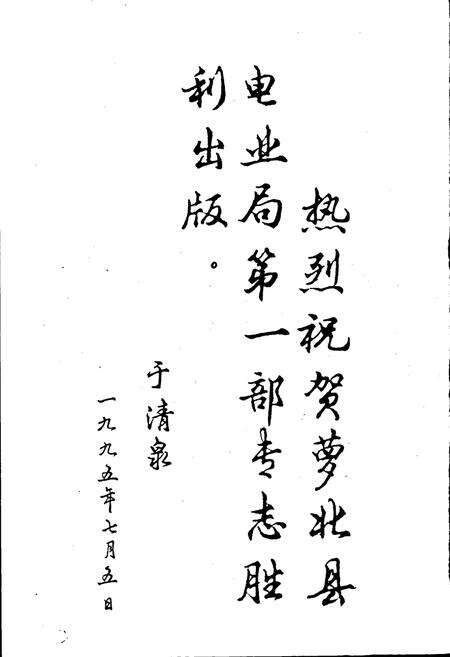 热烈祝贺萝北县
电业局第一部专志胜
利出版。
于清泉
一九九五年七月五日